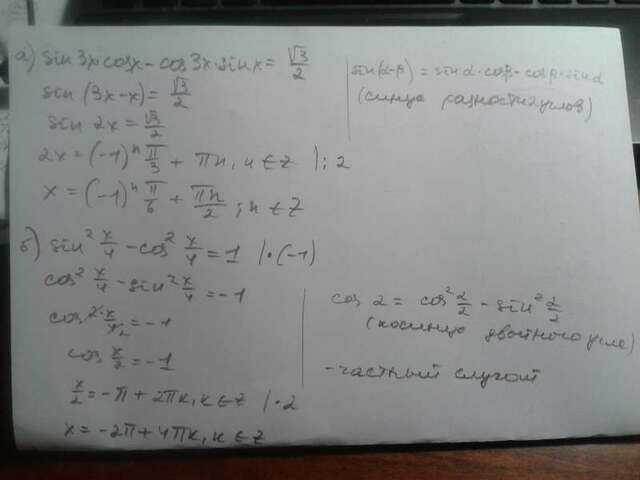 а) sin 3x·cos x − cos 3x·sin x = √3/2
sin (3x−x) = √3/2
sin 2x = √3/2
2x = (−1)ⁿ π/3 + πn, n ∈ Z |:2
x = (−1)ⁿ π/6 + πn/2 ; n ∈ Z
sin(α−β) = sinα·cosβ−cosβ·sinα
(синус разности 2 углов)
б) sin² x/4 − cos² x/4 = 1 |·(−1)
cos² x/4 − sin² x/4 = −1
cos 2·x/4₂ = −1
cos x/2 = −1
x/2 = −π + 2πк, к ∈ Z |·2
x = −2π + 4πк, к ∈ Z
cos α = cos² α/2 − sin² α/2
(косинус двойного угла)
−частный случай